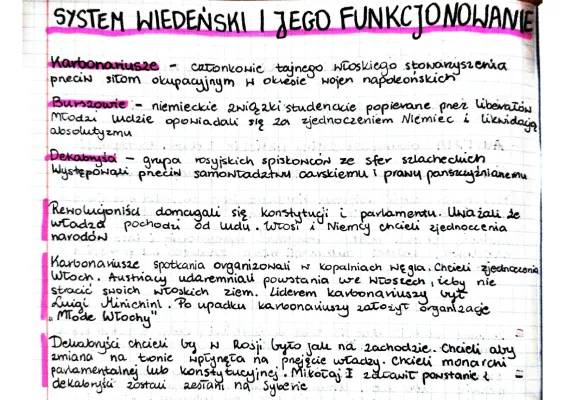 SYSTEM WIEDEŃSKI I JEGO FUNKCJONOWANIE
Karbonariusze - członkowie tajnego włoskiego stowarzyszenia
przeciw siłom okupacyjnym w okresie wojen napoleońskich
Burszowie - niemieckie związki studenckie popierane przez liberałów
Młodzi ludzie opowiadali się za zjednoczeniem Niemiec i likwidacją
absolutyzmu
Dekabryści - grupa rosyjskich spiskowców ze sfer szlacheckich
Występowali przeciw samowładztwu carskiemu i prawu pańszczyźnianemu
Rewolucjoniści domagali się konstytucji i parlamentu. Uważali że
władza pochodzi od ludu. Włosi i Niemcy chcieli zjednoczenia
narodów
Karbonariusze spotkania organizowali w kopalniach węgla. Chcieli zjednoczenia
Włoch. Austriacy udaremniali powstania we Włoszech, żeby nie
stracić swoich włoskich ziem. Liderem karbonariuszy był
Luigi Minichini. Po upadku karbonariuszy założył organizację
„Młode Włochy"
Dekabryści chcieli by w Rosji było jak na zachodzie. Chcieli aby
zmiana na tronie wpłynęła na przejęcie władzy. Chcieli monarchi
parlamentalnej lub konstytucyjnej. Mikołaj I zdławił powstanie i
dekabryści zostali zesłani na Syberię